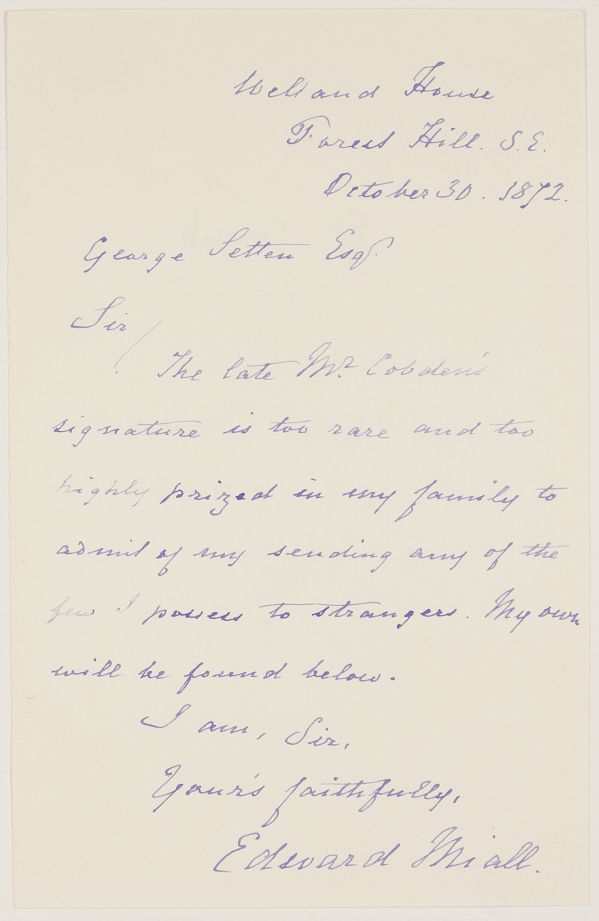 Welland House
Forest Hill. S.E.
October 30. 1872.
George Setten Esqr
Sir/
The late Mr. Cobden's
signature is too rare and too
highly prized in my family to
admit of my sending any of the
few I possess to strangers. My own
will be found below.
I am, Sir,
Your's faithfully,
Edward Miall.